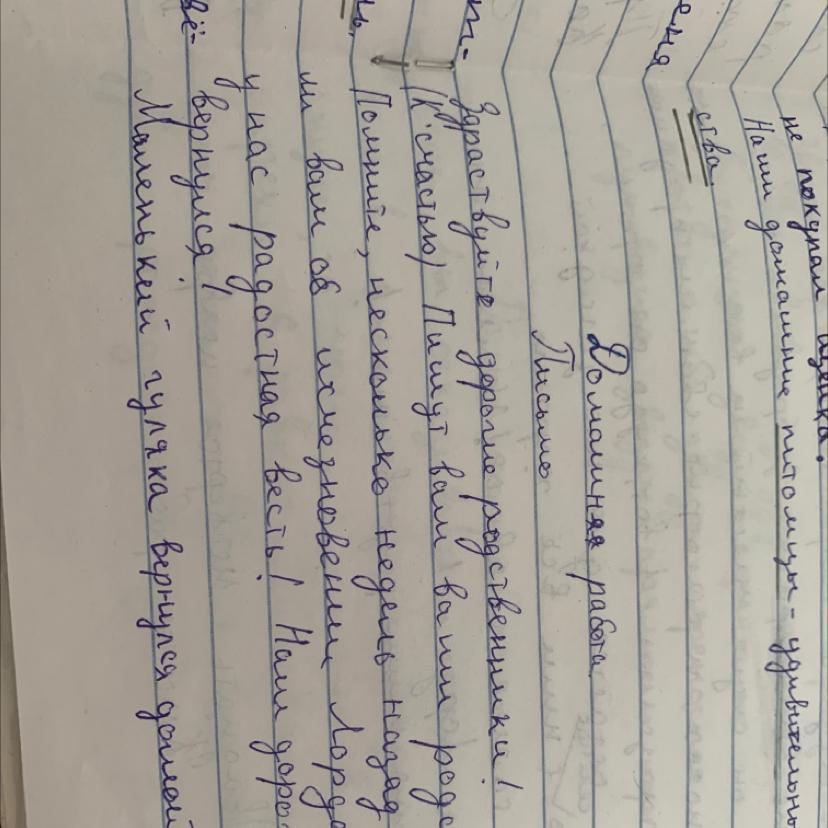 не покупал щенка.
Наши домашние питомцы - удивительны
ства.
Домашняя работа.
Письмо
Здраствуйте дорогие родственники!
(К счастью) Пишут вам ваши родс
Помните, несколько недель назад
ли вам об исчезновении Лорда
у нас радостная весть! Наш доро
вернулся!
Маленький гуляка вернулся домой